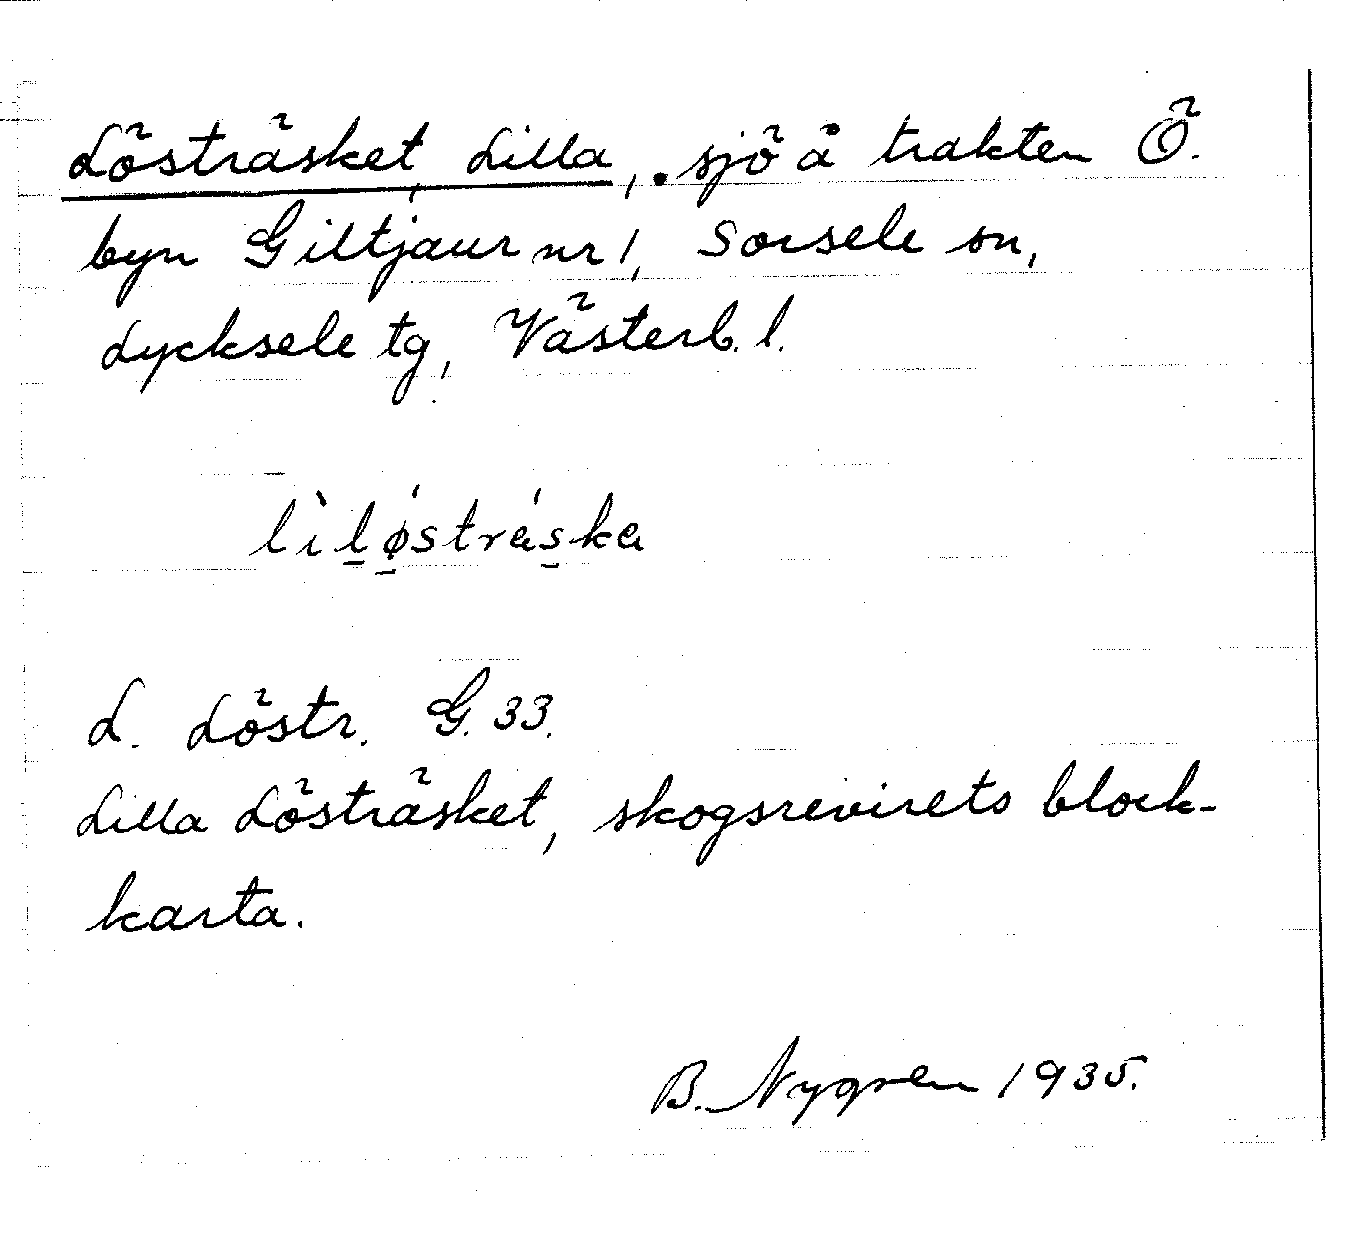 Lösträsket, Lilla, sjö å trakten Ö.
byn Giltjaur nr 1, Sorsele sn,
Lycksele tg, Västerb. l.
lìlø̱´strás̱ka
L. Löstr. G. 33.
Lilla Lösträsket, skogsrevirets block-
karta.
B. Nygren 1935.